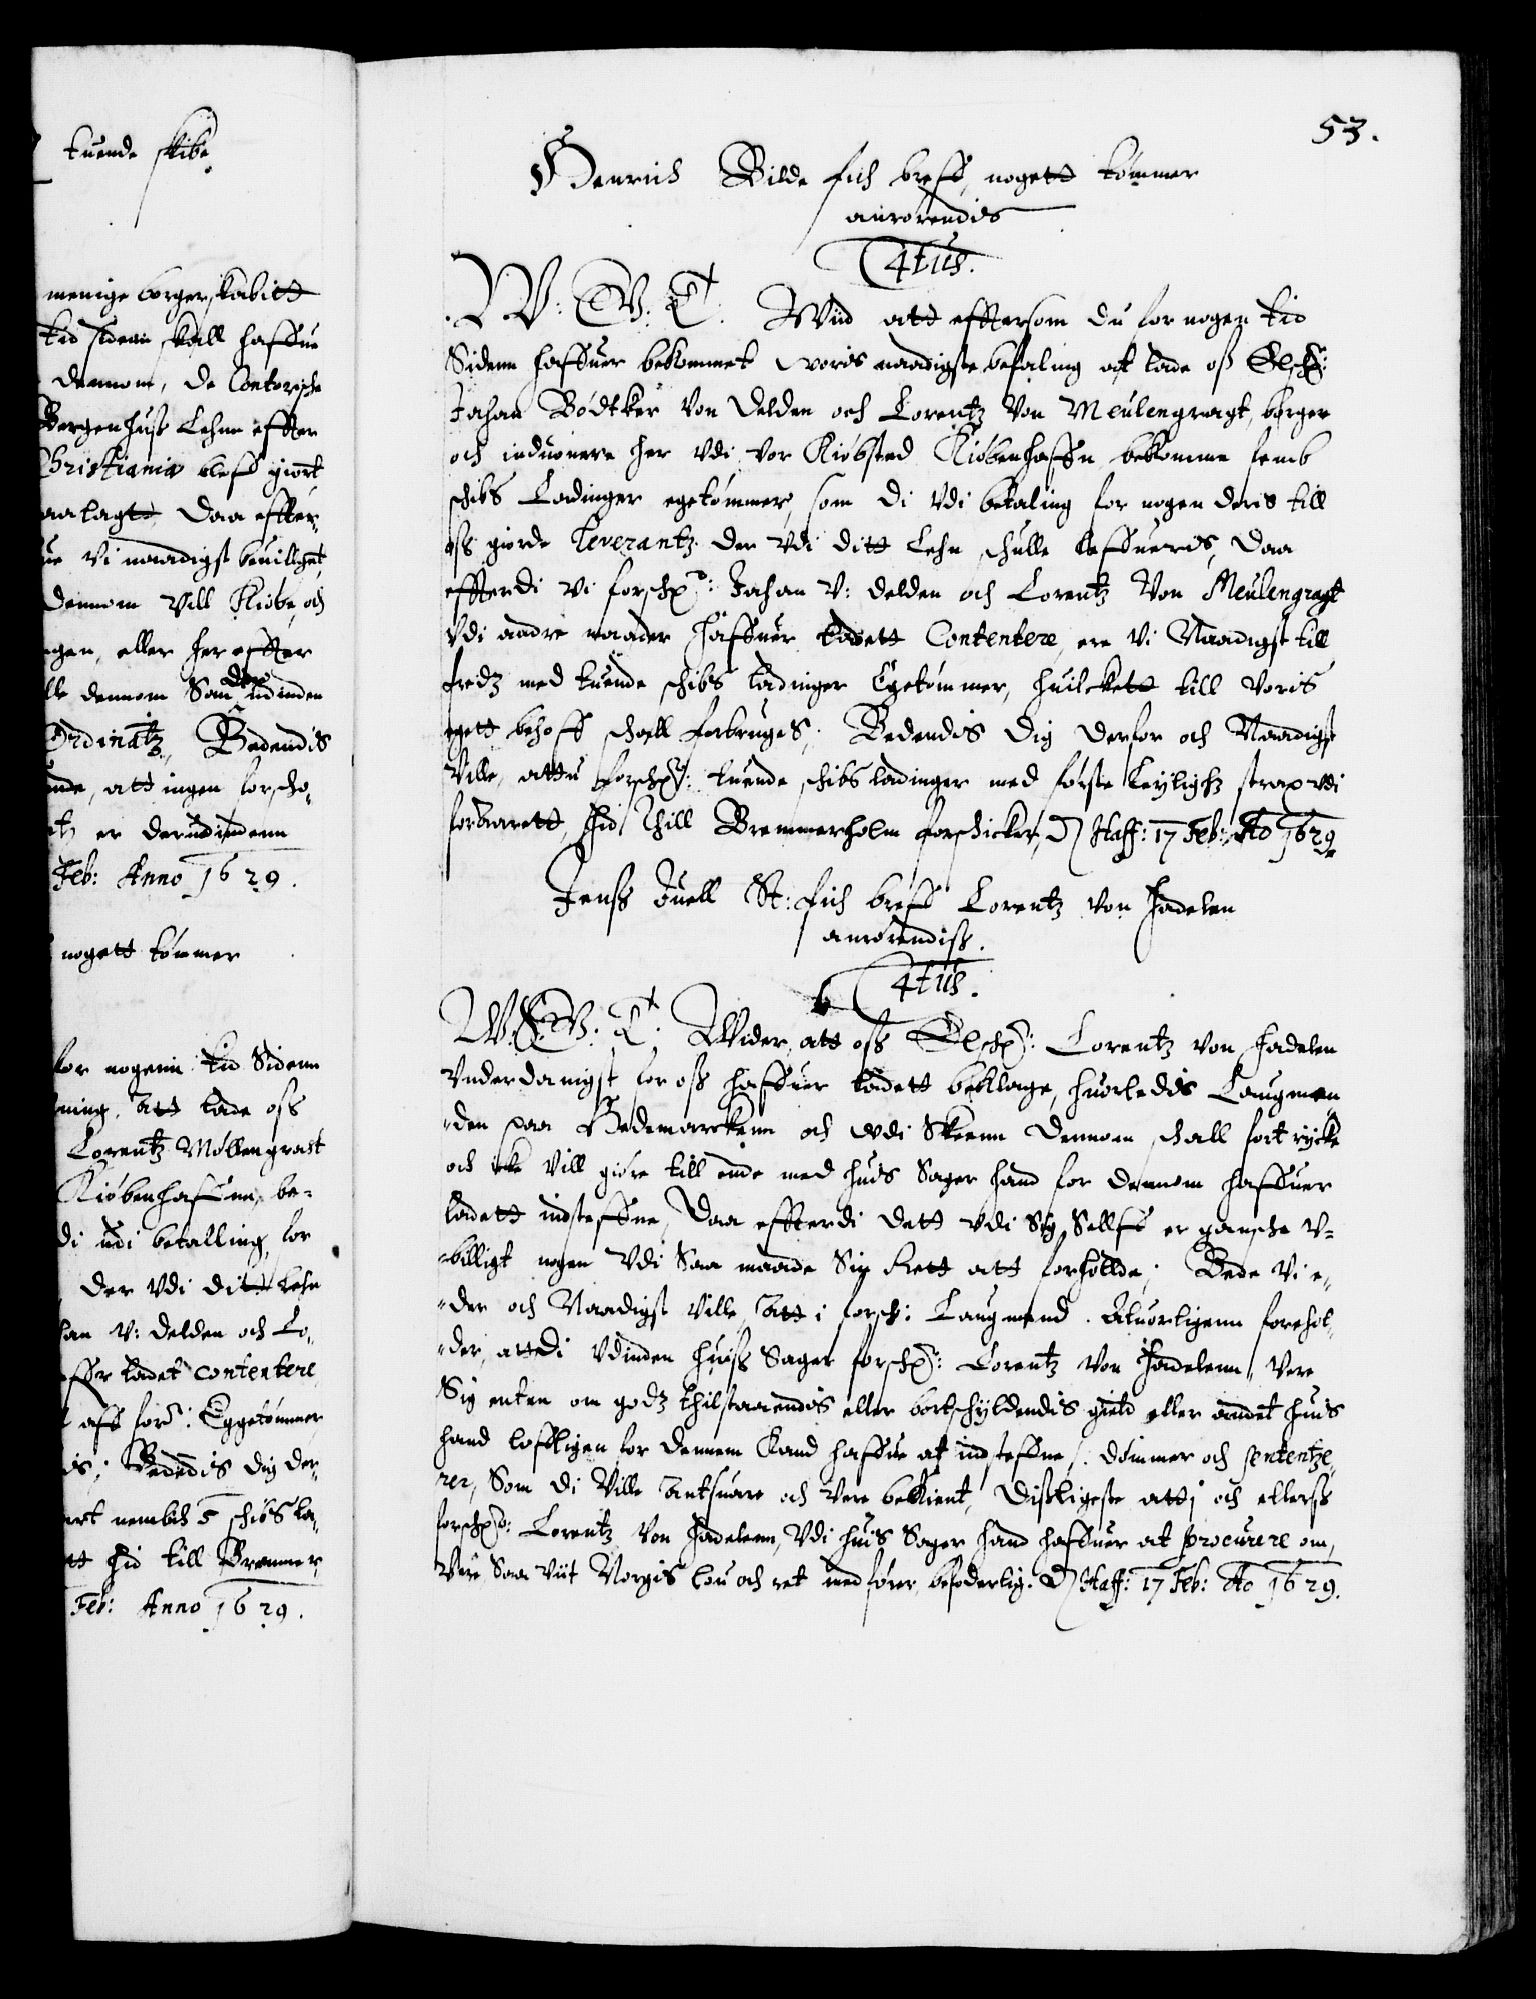 tuende skibe
menige borgerskabitt
tid sidenn skall haffue
dennom, de Contorsche
Bergenhuss Lehnn effter
Christiania bleff giort
aalagt, daa effter¬
ue vi naadigst beuillget,
dennom Vill Kiøbe, och
gen, eller her effter
lle dennom Som der udinden
Ordinatz, Bedendis
nde, att ingen forscho¬
tz er derudindenn
Feb: Anno 1629.
nogett tømmer
for nogenn tid Sidenn
ning, att lade oss
Lorentz Møllengracht
Kiøbenhaffnn, be-
di udi betalling, for
der vdi ditt Lehn
han v: Delden och Lo¬
ffr ladet contentere
aff for: Eggetømmer
is; Bedendis dig der¬
rt nemblich 5 schibs la¬
tt hid till Bremmer¬
Feb: Anno 1629.
53.
Henrich Bilde fich breff, nogett tømmer
anrorendis
4tus.
W: G: T. Wiid att efftersom du for nogen tid
Sidenn haffuer bekommet woris naadigste befaling at lade oß Elsch:
Johan Bødtker von Delden och Lorentz von Meulengragt, borger
och induonere her vdi vor Kiøbsted Kiøbenhaffn bekomme femb
schibs Ladinger egetømmer, som di vdi betaling for nogen deris till
oss giorde Leverantz der vdi ditt Lehn schulle leffueris, Daa
effterdi vi forschr: Johan v: Delden och Lorentz von Meulengragt
vdi andre maader haffuer ladett Contentere, ere vi Naadigst till
fredz med tuende schibs ladinger Egetømmer, huilckett till Voris
egett behoff schall forbruges; Bedendis dig derfor och Naadigst
Ville, attu forschr: tuende schibs ladinger med første Leyligh: strax vdi
foraarett, hid thill Bremmerholm forschicker, D Haff: 17 Feb: Ao 1629
Jenss Juell St: fich breff Lorentz von Hadelen
anrorendiss.
4tus.
W: G: T: Wider, att oss Elsch: Lorentz von Hadelen
Vnderdanigst for oss haffuer ladett beklage, huorledis Laugmen¬
den paa Hedemarckenn och vdi Skeenn dennom schall fort rycke
och icke vill giøre till ende med huis Sager hand for dennom haffuer
ladett indsteffne, Daa effterdi dett vdi Sig Sellff er gansche v¬
billigt nogen Vdi Saa maade Sin Rett att forhollde; Bede vi e¬
der och Naadigst Ville, att i forsch: Laugmend Aluorligenn forehol¬
der, att di vdinden huiss Sager forschr: Lorentz von Hadelenn, Vere
Sig enten om godz thilstaaendis eller bortschyldendis gield eller andet huis
hand loffligen for dennem Kand haffue at indsteffne, dømmer och sententze¬
rer, Som di Ville Antsuare och Vere bekient, Dissligeste att i och ellerss
forschr: Lorentz von Hadelenn, Vdi huis Sager hand haffuer at procurere om,
Vere Saa viit Norgis lou och ret medfører, befoderlig. D Haff: 17 Feb: Ao 1629.